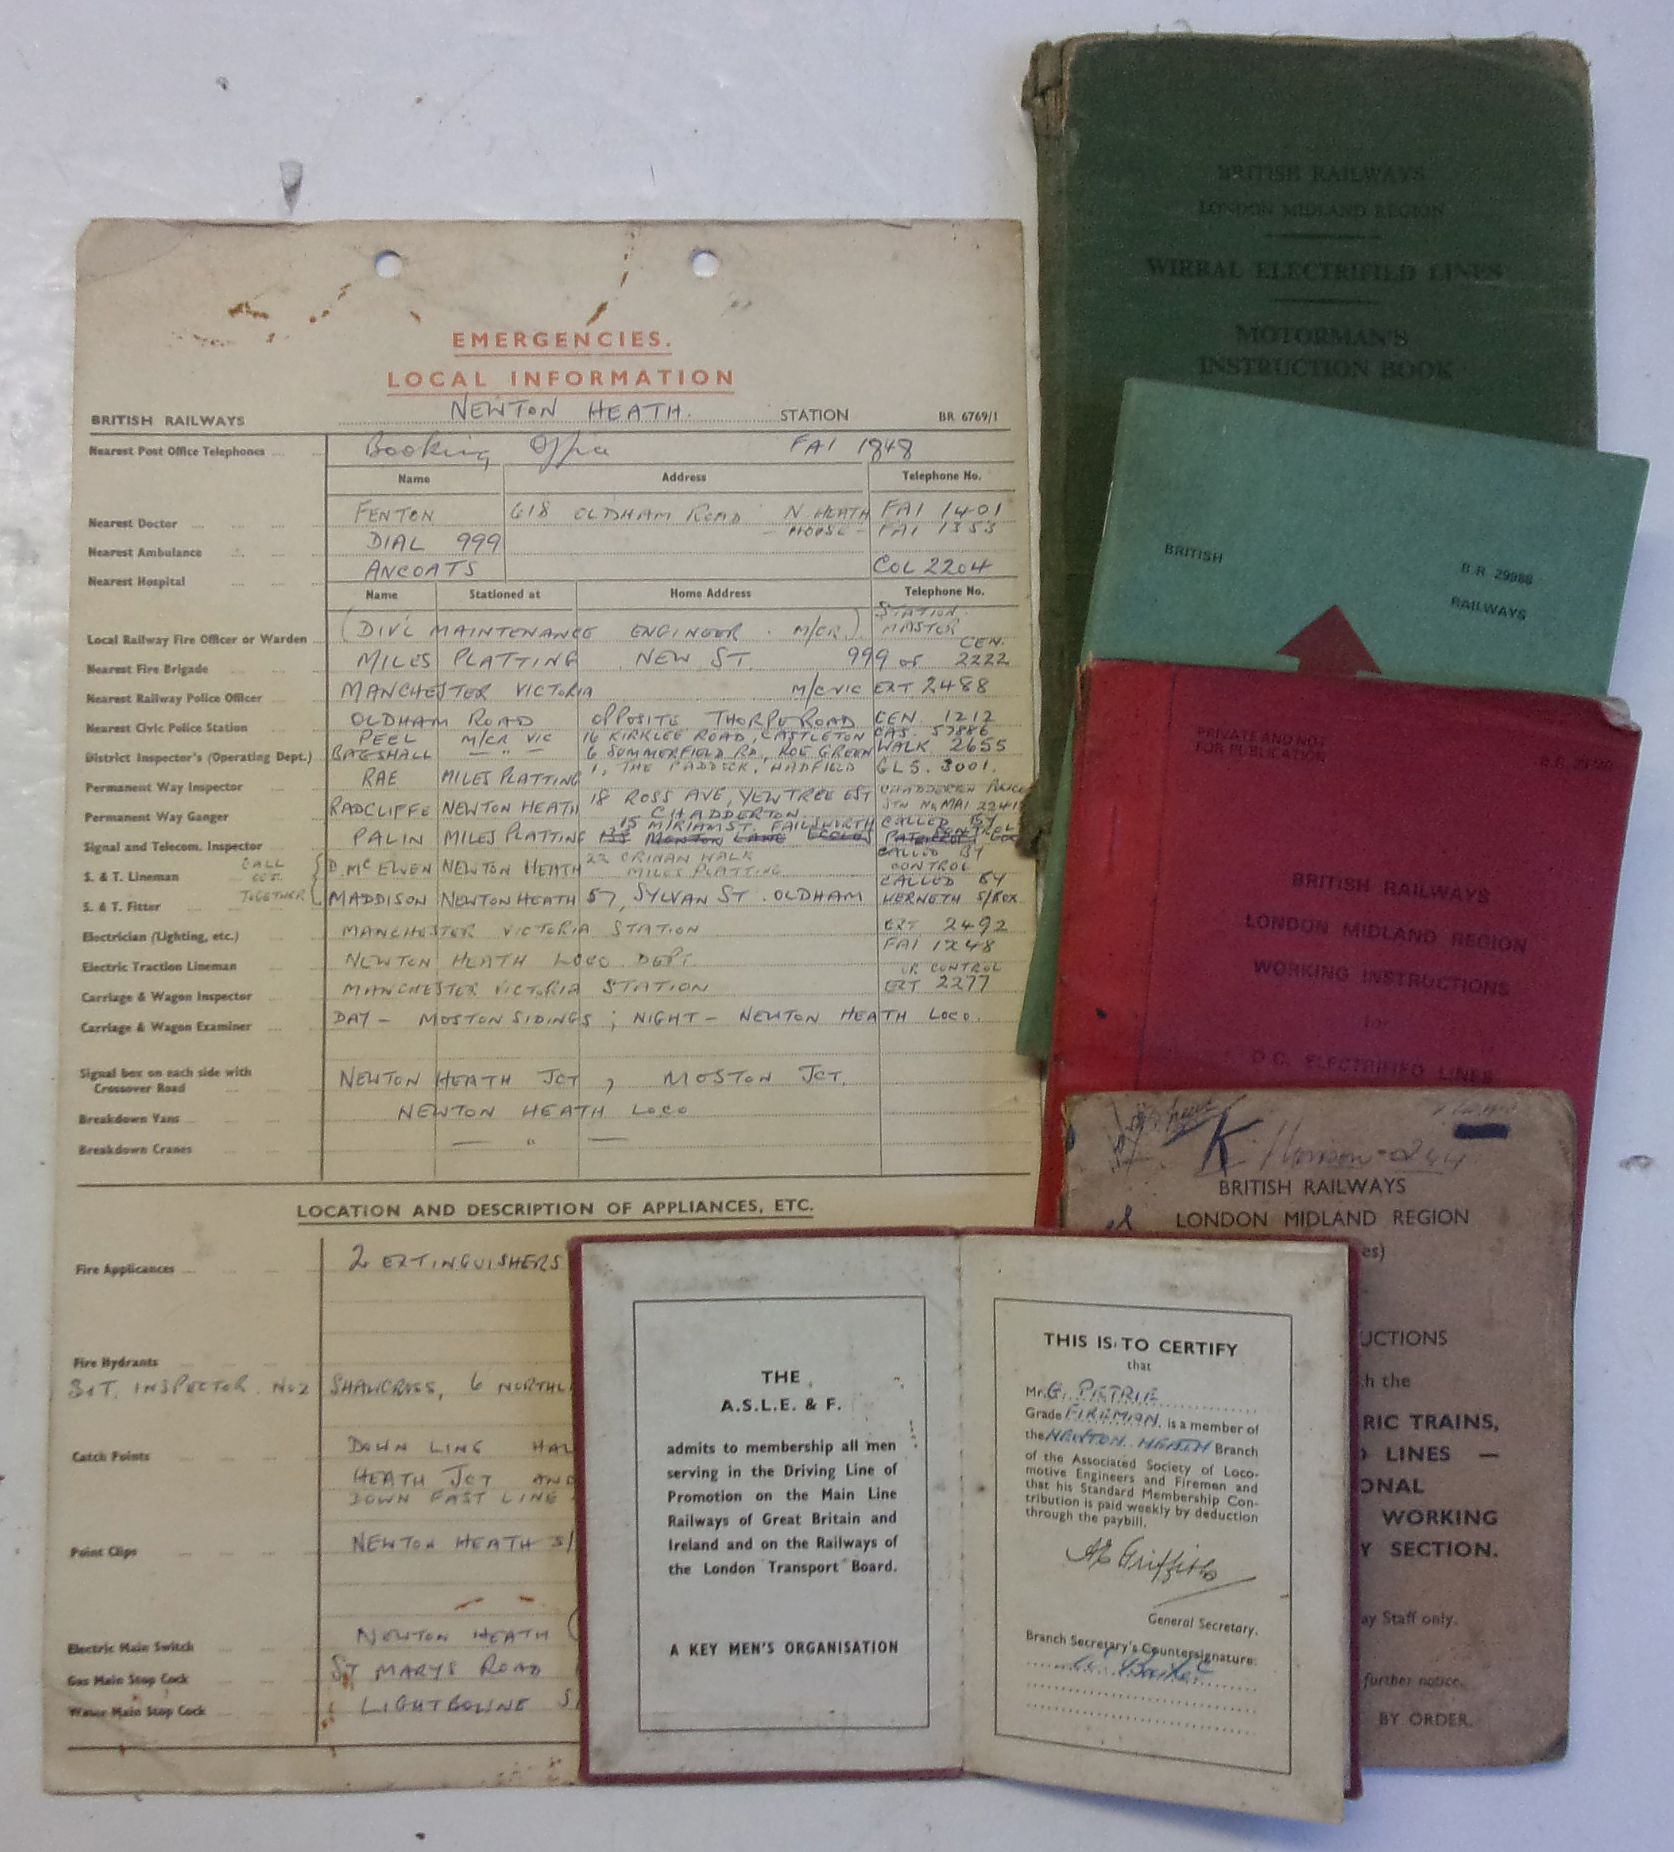 EMERGENCIES.
LOCAL INFORMATION
BRITISH RAILWAYS NEWTON HEATH. STATION BR 6769/1
Nearest Post Office Telephones Booking Office FAI 1848
Name Address Telephone No.
Nearest Doctor FENTON 618 OLDHAM ROAD N HEATH FAI 1401
- HOUSE - FAI 1353
Nearest Ambulance DIAL 999
Nearest Hospital ANCOATS COL 2204
Name Stationed at Home Address Telephone No.
Local Railway Fire Officer or Warden (DIV'L MAINTENANCE ENGINEER. M/CR.) STATION MASTER
Nearest Fire Brigade MILES PLATTING NEW ST. 999 or CEN. 2222
Nearest Railway Police Officer MANCHESTER VICTORIA M/C VIC EXT 2488
Nearest Civic Police Station OLDHAM ROAD OPPOSITE THORPE ROAD CEN. 1212
District Inspector's (Operating Dept.) PEEL M/CR VIC 16 KIRKLEE ROAD, CASTLETON CAS. 57886
BAGSHALL — " — 6 SUMMERFIELD RD, ROE GREEN WALK 2655
Permanent Way Inspector RAE MILES PLATTING 1, THE PADDOCK, HADFIELD GLS. 3001.
Permanent Way Ganger RADCLIFFE NEWTON HEATH 18 ROSS AVE, YEWTREE EST CHADDERTON. CHADDERTON POLICE STN No MAI 2241
Signal and Telecom. Inspector PALIN MILES PLATTING 15 MIRIAM ST. FAILSWORTH CALLED BY CONTROL
MONTON LANE ECCLES
CALL OUT TOGETHER
S. & T. Lineman D. McEWEN NEWTON HEATH 22 CRINAN WALK MILES PLATTING CALLED BY CONTROL
S. & T. Fitter MADDISON NEWTON HEATH 57, SYLVAN ST. OLDHAM CALLED BY WERNETH S/BOX.
Electrician (Lighting, etc.) MANCHESTER VICTORIA STATION EXT 2492
Electric Traction Lineman NEWTON HEATH LOCO DEPT. FAI 1248
OR CONTROL
Carriage & Wagon Inspector MANCHESTER VICTORIA STATION EXT 2277
Carriage & Wagon Examiner DAY - MOSTON SIDINGS; NIGHT - NEWTON HEATH LOCO.
Signal box on each side with
Crossover Road NEWTON HEATH JCT, MOSTON JCT.
Breakdown Vans NEWTON HEATH LOCO
Breakdown Cranes — " —
LOCATION AND DESCRIPTION OF APPLIANCES, ETC.
Fire Applicances 2 EXTINGUISHERS
Fire Hydrants
S&T. INSPECTOR No2 SHAWCROSS, 6 NORTHL
Catch Points DOWN LINE HAL
HEATH JCT AND
DOWN FAST LINE
Point Clips NEWTON HEATH S/
Electric Main Switch NEWTON HEATH (
Gas Main Stop Cock ST MARYS ROAD
Water Main Stop Cock LIGHTBOWNE S
BRITISH RAILWAYS
LONDON MIDLAND REGION
WIRRAL ELECTRIFIED LINES
MOTORMAN'S
INSTRUCTION BOOK
BRITISH
B.R. 29988
RAILWAYS
PRIVATE AND NOT
FOR PUBLICATION
BRITISH RAILWAYS
LONDON MIDLAND REGION
WORKING INSTRUCTIONS
for
D.C. ELECTRIFIED LINES
BRITISH RAILWAYS
LONDON MIDLAND REGION
es)
UCTIONS
h the
RIC TRAINS,
LINES —
ONAL
WORKING
Y SECTION.
ay Staff only.
further notice.
BY ORDER.
THE
A.S.L.E. & F.
admits to membership all men
serving in the Driving Line of
Promotion on the Main Line
Railways of Great Britain and
Ireland and on the Railways of
the London Transport Board.
A KEY MEN'S ORGANISATION
THIS IS TO CERTIFY
that
Mr. G. PETRIE
Grade FIREMAN is a member of
the NEWTON HEATH Branch
of the Associated Society of Loco-
motive Engineers and Firemen and
that his Standard Membership Con-
tribution is paid weekly by deduction
through the paybill.
AE Griffiths
General Secretary.
Branch Secretary's Countersignature: